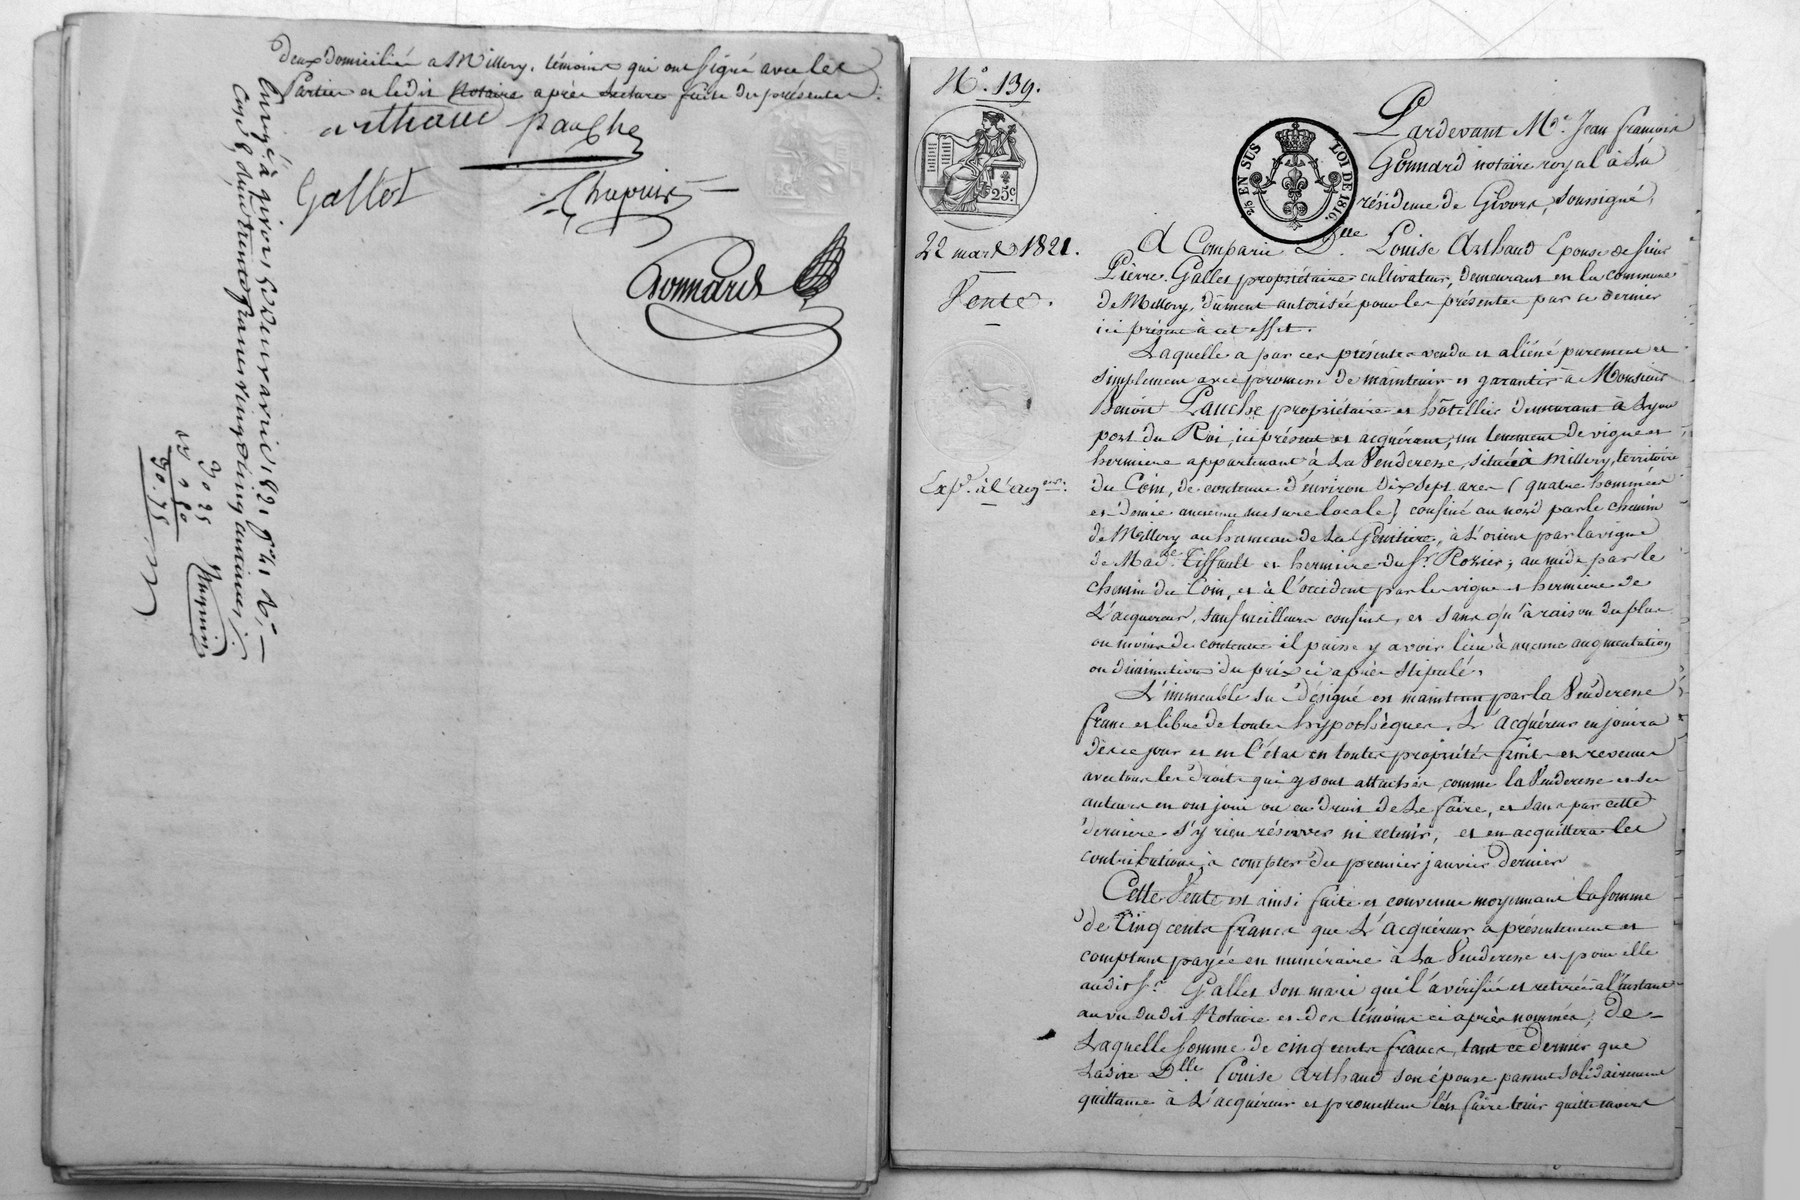 deux domiciliés a Millery, témoins qui ont signé avec les
Parties et ledit Notaire apres Lecture faite du présentes.
arthaud pauche
Gallet
Chapuis
Gonnard
Enrgé à givors le deux avril 1821 f° 41 v°
cinq, dixième trente francs vingt cinq centimes
30 25
90.75
N°. 139.
25c
22 mars 1821.
Vente.
Expon. à l'acqeur.
2/5 EN SUS LOI DE 1816.
Pardevant Me. Jean françois
Gonnard notaire royal à la
résidence de Givors, soussigné,
A Comparu Dlle. Louise Arthaud Epouse de sieur
Pierre Gallet propriétaire cultivateur, demeurant en la commune
de Millery, dûment autorisée pour les présentes par ce dernier
ici présent à cet effet.
Laquelle a par ces présentes vendu et aliéné purement et
simplement avec promesse de maintenir et garantir à Monsieur
Benoit Pauche propriétaire et hôtellier demeurant à Lyon
port du Roi, ici présent et acquérant, un tenement de vigne et
hermiene appartenant à La Venderesse, située à Millery, territoire
du Coin, de contenue d'environ dix sept ares (quatre hommées
et demie ancienne mesure locale) confiné au nord par le chemin
de Millery au hameau de La Gentiere, à l'orient par la vigne
de Made. Tiffault et hermiere du Sr. Rozier; au midi par le
chemin du Coin, et à l'occident par les vigne et hermiene de
L'acquereur, sauf meilleurs confins, et sans qu'à raison du plus
ou moins de contenue il puisse y avoir lieu à aucune augmentation
ou diminution du prix ci après stipulé.
L'immeuble su désigné est maintenu par la Venderesse
franc et libre de toutes hypothèques. L'acquéreur en jouira
dès ce jour et en l'état en toutes propriétés fruits et revenus
avec tous les droits qui y sont attachés, comme la Venderesse et ses
auteurs en ont joui ou eu droit de Le faire, et sans par cette
derniere s'y rien réserver ni retenir, et en acquittera les
contributions, à compter du premier janvier dernier
Cette Vente est ainsi faite et convenue moyennant la somme
de Cinq cents francs que L'acquéreur a présentement et
comptant payée en numéraire à La Venderesse et pour elle
audit Sr. Gallet son mari qui l'a vérifiée et retirée à l'instant
au vu dudit Notaire et des témoins ci après nommés; de
Laquelle somme de cinq cents francs, tant ce dernier que
Ladite Dlle. Louise arthaud son épouse passent solidairement
quittance à L'acquéreur et promettent l'en faire tenir quitte envers